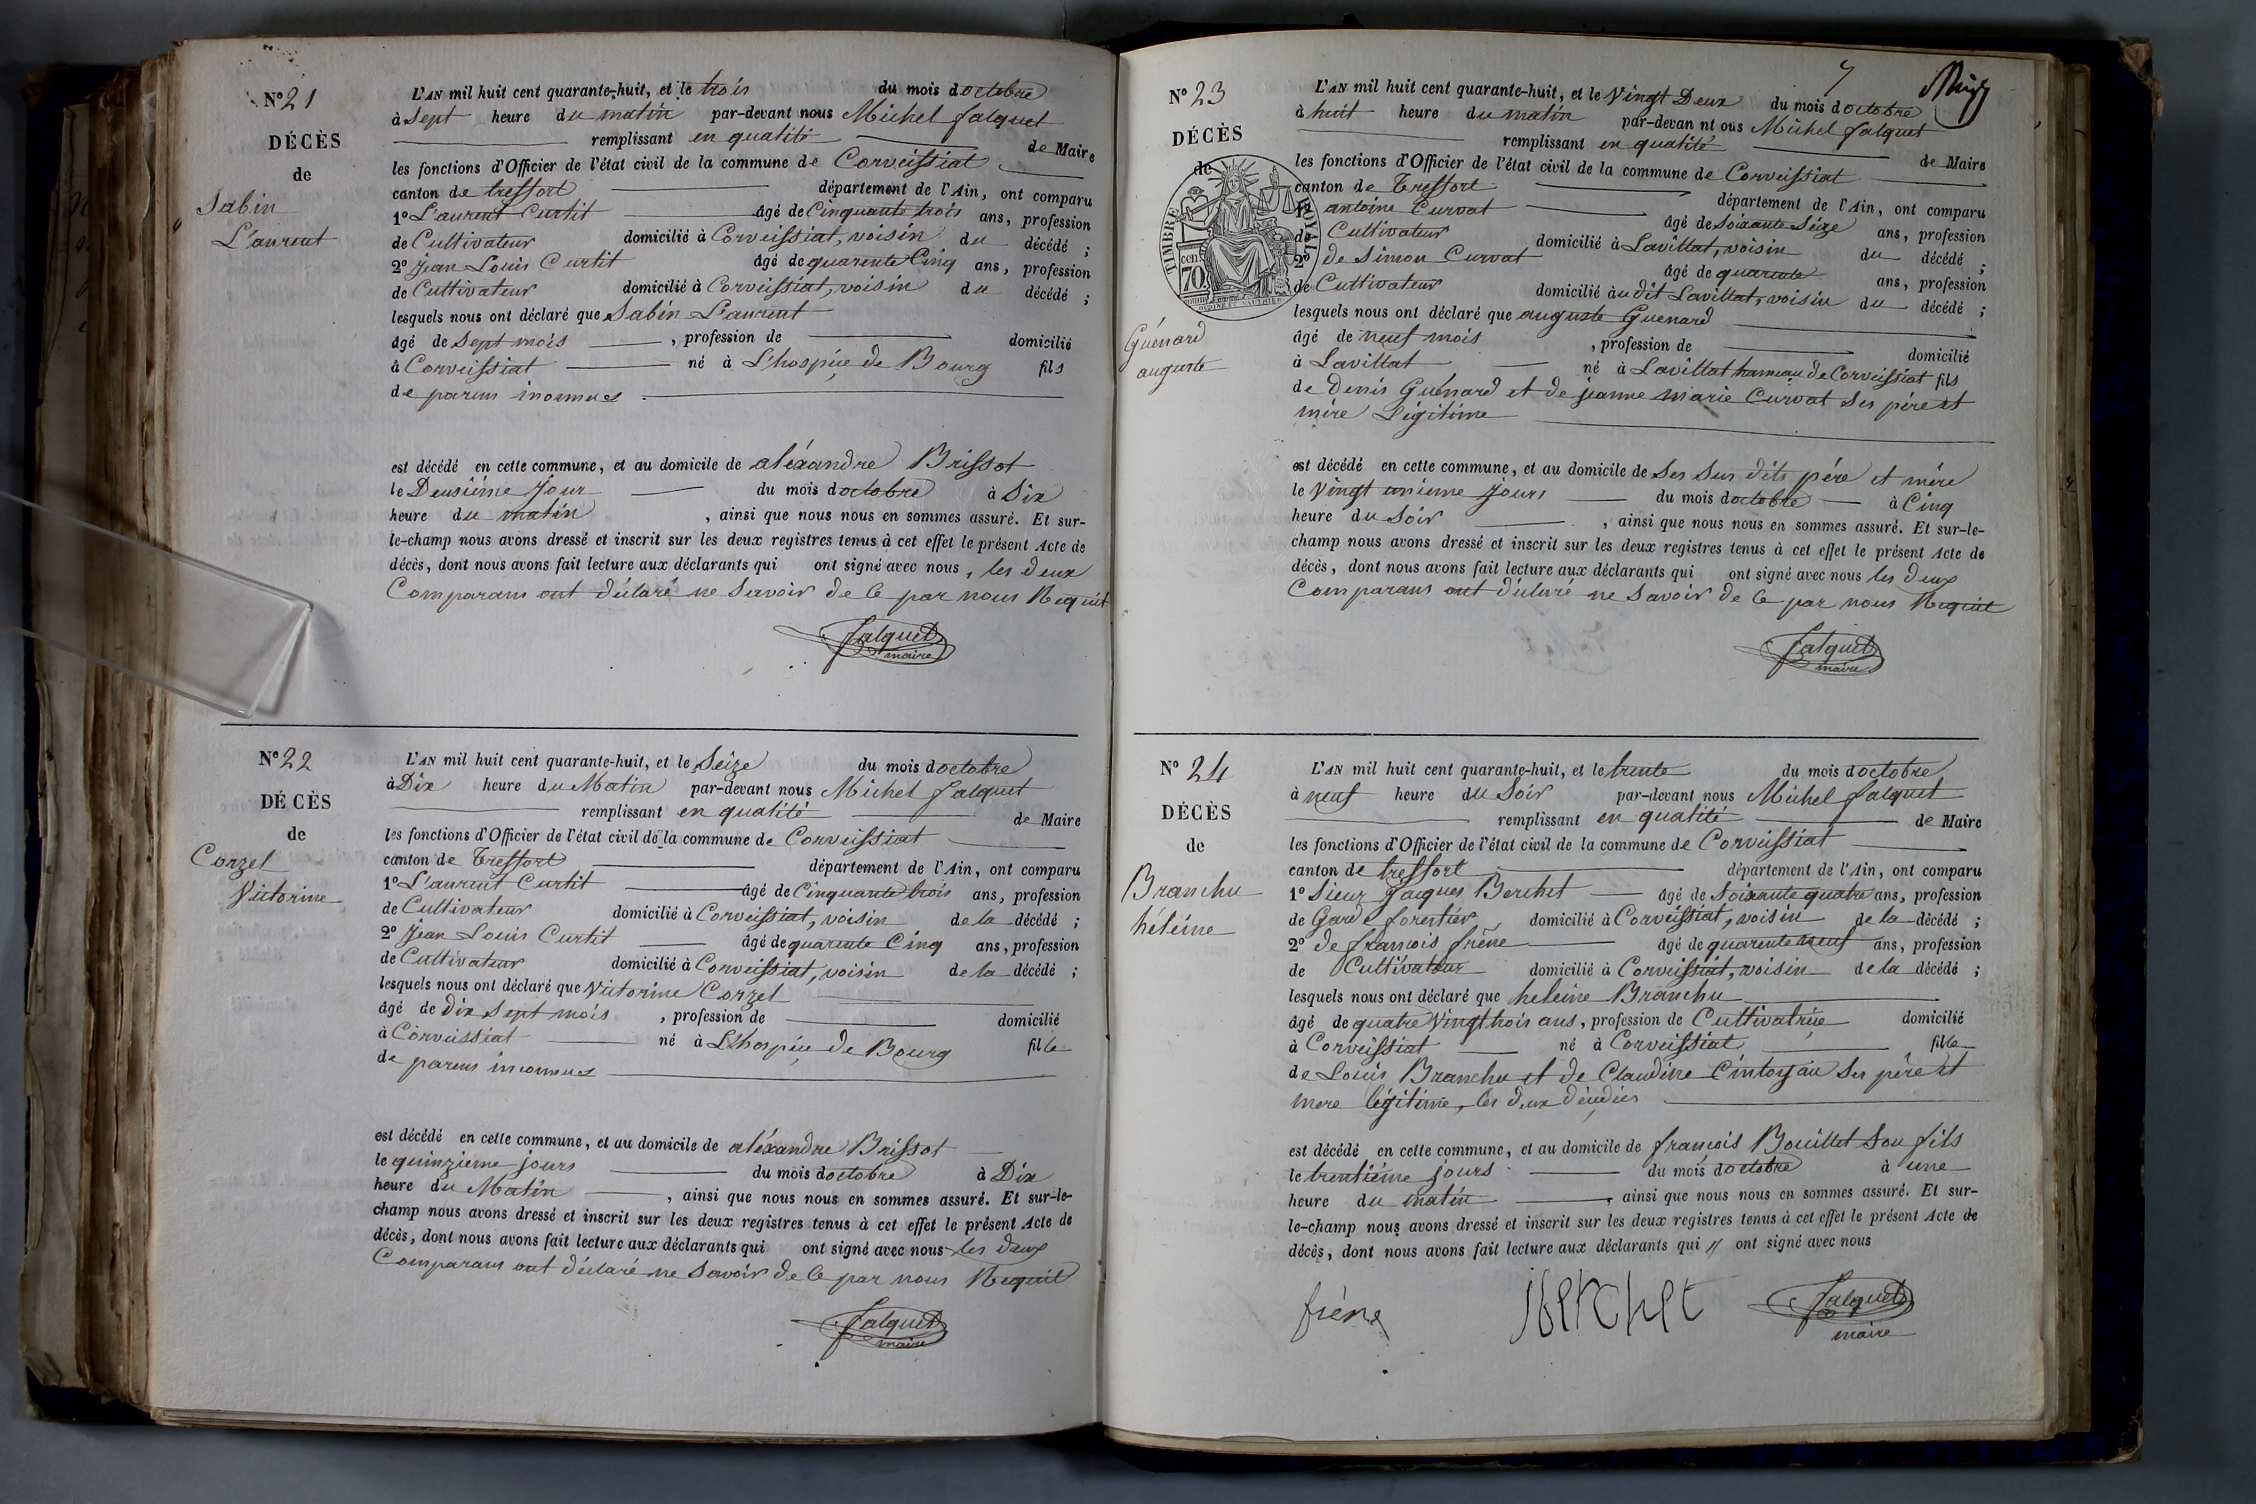 N° 21
DÉCÈS
de
Sabin
Laurent
L'AN mil huit cent quarante-huit, et le trois du mois d octobre
à Sept heure du matin par-devant nous Michel falquet
remplissant en qualité de Maire
les fonctions d'Officier de l'état civil de la commune de Corveissiat
canton de treffort département de l'Ain, ont comparu
1° Laurent Curtit âgé de Cinquante trois ans, profession
de Cultivateur domicilié à Corveissiat, voisin du décédé ;
2° Jean Louis Curtit âgé de quarente Cinq ans, profession
de Cultivateur domicilié à Corveissiat, voisin du décédé ;
lesquels nous ont déclaré que Sabin Laurent
âgé de Sept mois , profession de domicilié
à Corveissiat né à L'hospice de Bourg fils
de parens inconnues
est décédé en cette commune, et au domicile de aléxandre Brissot
le Deusiéme Jour du mois d octobre à Six
heure du matin , ainsi que nous nous en sommes assuré. Et sur-
le-champ nous avons dressé et inscrit sur les deux registres tenus à cet effet le présent Acte de
décès, dont nous avons fait lecture aux déclarants qui ont signé avec nous, les deux
Comparans ont déclaré ne Savoir de ce par nous Requit
falquet
maire
N° 22
DÉCÈS
de
Corzet
Victorine
L'AN mil huit cent quarante-huit, et le Seize du mois d octobre
à Dix heure du Matin par-devant nous Michel falquet
remplissant en qualité de Maire
les fonctions d'Officier de l'état civil de la commune de Corveissiat
canton de Treffort département de l'Ain, ont comparu
1° Laurent Curtit âgé de Cinquante trois ans, profession
de Cultivateur domicilié à Corveissiat, voisin de la décédé ;
2° Jean Louis Curtit âgé de quarente Cinq ans, profession
de Cultivateur domicilié à Corveissiat, voisin de la décédé ;
lesquels nous ont déclaré que Victorine Corzet
âgé de dix Sept mois , profession de domicilié
à Corveissiat né à L'hospice de Bourg fille
de parens inconnues
est décédé en cette commune, et au domicile de aléxandre Brissot
le quinzieme jours du mois d octobre à Dix
heure du Matin , ainsi que nous nous en sommes assuré. Et sur-le-
champ nous avons dressé et inscrit sur les deux registres tenus à cet effet le présent Acte de
décès, dont nous avons fait lecture aux déclarants qui ont signé avec nous les deux
Comparans ont déclaré ne Savoir de ce par nous Requit
falquet
maire
7
N° 23
DÉCÈS
de
TIMBRE ROYAL
cen. 70
Guénard
auguste
L'AN mil huit cent quarante-huit, et le Vingt Deux du mois d octobre
à huit heure du matin par-devan nt ous Michel falquet
remplissant en qualité de Maire
les fonctions d'Officier de l'état civil de la commune de Corveissiat
canton de Treffort département de l'Ain, ont comparu
1° antoine Curvat âgé de Soixante Seize ans, profession
de Cultivateur domicilié à Lavillat, voisin du décédé ;
2° de Simon Curvat âgé de quarente ans, profession
de Cultivateur domicilié à udit Lavillat, voisin du décédé ;
lesquels nous ont déclaré que auguste Guenard
âgé de neuf mois , profession de domicilié
à Lavillat né à Lavillat hameau de Corveissiat fils
de Denis Guénard et de jeanne marie Curvat Ses pére et
mére Légitime
est décédé en cette commune, et au domicile de Ses Sus dits pére et mére
le Vingt unieme jours du mois d octobre à Cinq
heure du Soir , ainsi que nous nous en sommes assuré. Et sur-le-
champ nous avons dressé et inscrit sur les deux registres tenus à cet effet le présent Acte de
décès, dont nous avons fait lecture aux déclarants qui ont signé avec nous les deux
Comparans ont déclaré ne Savoir de ce par nous Requit
falquet
maire
N° 24
DÉCÈS
de
Branchu
héleine
L'AN mil huit cent quarante-huit, et le trente du mois d octobre
à neuf heure du Soir par-devant nous Michel falquet
remplissant en qualité de Maire
les fonctions d'Officier de l'état civil de la commune de Corveissiat
canton de treffort département de l'Ain, ont comparu
1° Sieur Jacques Berchet âgé de Soixante quatre ans, profession
de Garde forestier, domicilié à Corveissiat, voisin de la décédé ;
2° de francois frêne âgé de quarente neuf ans, profession
de Cultivateur domicilié à Corveissiat, voisin de la décédé ;
lesquels nous ont déclaré que heleine Branchu
âgé de quatre Vingt trois ans, profession de Cultivatrice domicilié
à Corveissiat né à Corveissiat fille
de Louis Branchu et de Claudine Cintoyau Ses pére et
mere légitime, les deux décédés
est décédé en cette commune, et au domicile de francois Bouillet Son fils
le trentiéme jours du mois d octobre à une
heure du matin , ainsi que nous nous en sommes assuré. Et sur-
le-champ nous avons dressé et inscrit sur les deux registres tenus à cet effet le présent Acte de
décès, dont nous avons fait lecture aux déclarants qui ont signé avec nous
frène berchet falquet
maire